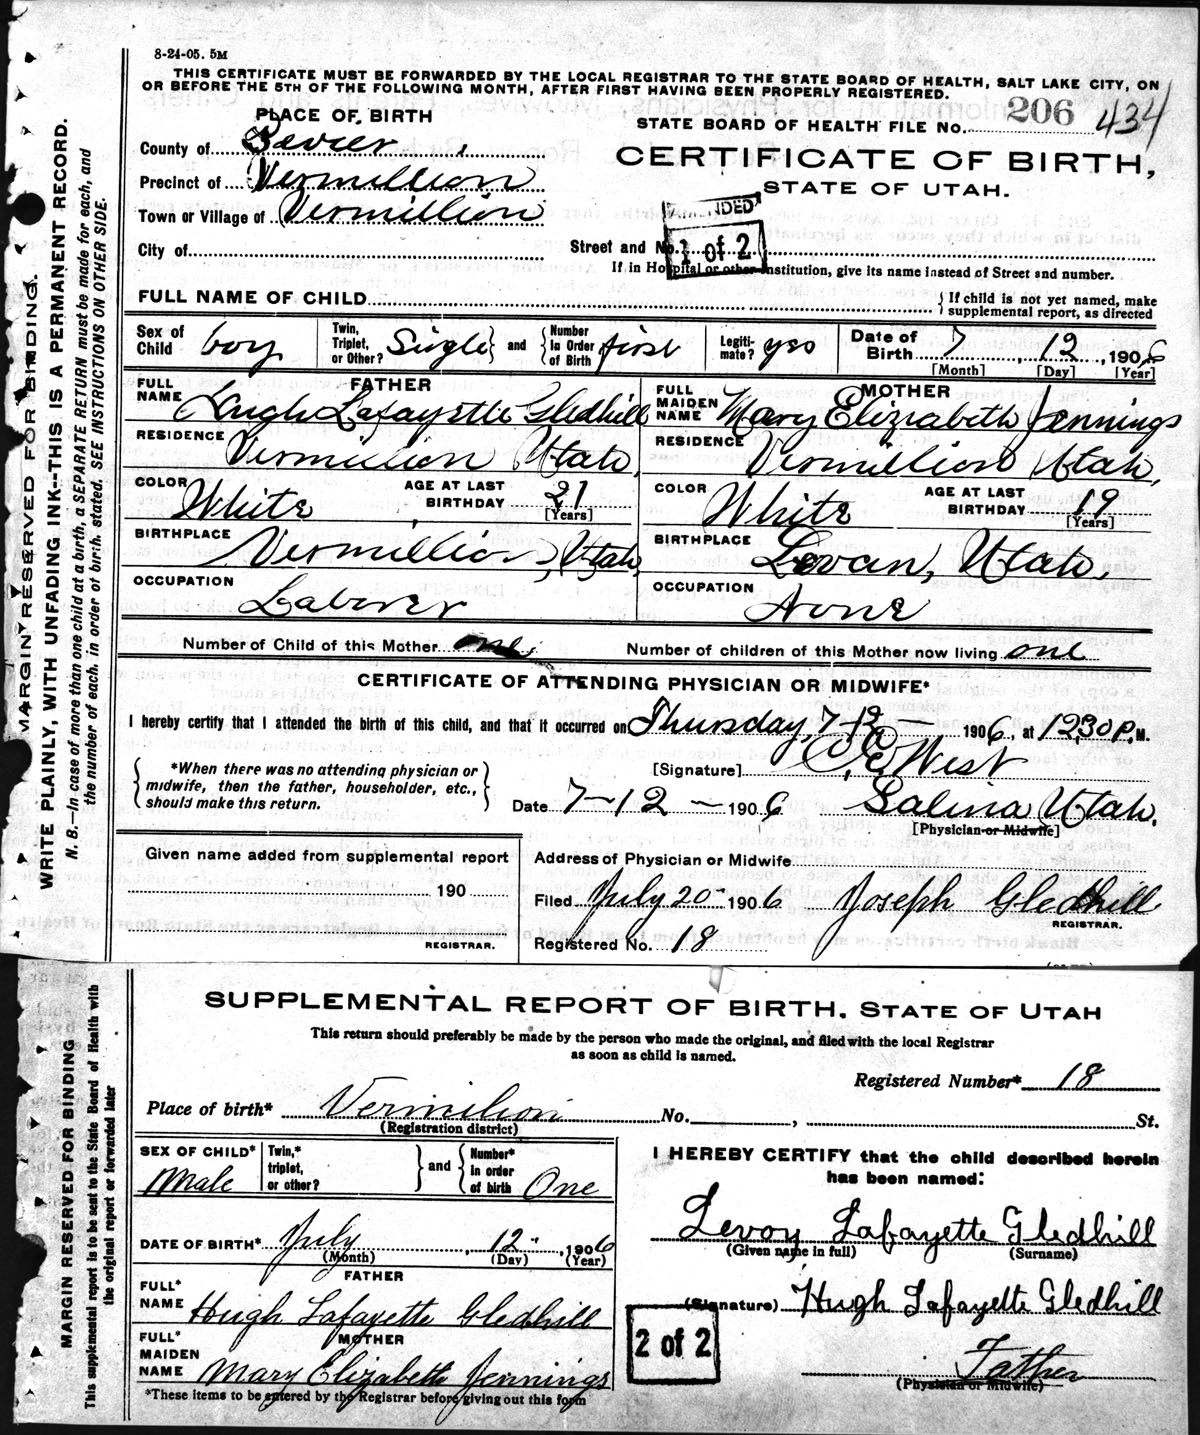 8-24-05. 5M
THIS CERTIFICATE MUST BE FORWARDED BY THE LOCAL REGISTRAR TO THE STATE BOARD OF HEALTH, SALT LAKE CITY, ON
OR BEFORE THE 5TH OF THE FOLLOWING MONTH, AFTER FIRST HAVING BEEN PROPERLY REGISTERED.
PLACE OF BIRTH
STATE BOARD OF HEALTH FILE NO. 206 434
County of Sevier
CERTIFICATE OF BIRTH,
Precinct of Vermillion
STATE OF UTAH.
Town or Village of Vermillion
AMENDED
1 of 2
City of
Street and No.
If in Hospital or other Institution, give its name instead of Street and number.
FULL NAME OF CHILD
{If child is not yet named, make
supplemental report, as directed
Sex of Child boy
Twin, Triplet, or Other? Single} and {Number in Order of Birth first
Legiti-mate? yes
Date of Birth 7, 12, 1906
[Month] [Day] [Year]
FATHER
FULL NAME Hugh Lafayette Gledhill
MOTHER
FULL MAIDEN NAME Mary Elizabeth Jennings
RESIDENCE Vermillion Utah,
RESIDENCE Vermillion Utah,
COLOR White
AGE AT LAST BIRTHDAY 21 [Years]
COLOR White
AGE AT LAST BIRTHDAY 19 [Years]
BIRTHPLACE Vermillion, Utah,
BIRTHPLACE Levan, Utah,
OCCUPATION Laborer
OCCUPATION None
Number of Child of this Mother one
Number of children of this Mother now living one
CERTIFICATE OF ATTENDING PHYSICIAN OR MIDWIFE*
I hereby certify that I attended the birth of this child, and that it occurred on Thursday, 7-12- 1906, at 12,30 P. M.
{*When there was no attending physician or
midwife, then the father, householder, etc.,
should make this return.}
[Signature] West
Date 7-12- 1906
Salina Utah.
[Physician or Midwife]
Given name added from supplemental report
190
REGISTRAR.
Address of Physician or Midwife
Filed July 20 1906
Joseph Gledhill
REGISTRAR.
Registered No. 18
MARGIN RESERVED FOR BINDING.
WRITE PLAINLY, WITH UNFADING INK--THIS IS A PERMANENT RECORD.
N. B.—In case of more than one child at a birth, a SEPARATE RETURN must be made for each, and
the number of each, in order of birth, stated. SEE INSTRUCTIONS ON OTHER SIDE.
SUPPLEMENTAL REPORT OF BIRTH, STATE OF UTAH
This return should preferably be made by the person who made the original, and filed with the local Registrar
as soon as child is named.
Registered Number* 18
Place of birth* Vermilion No. , St.
(Registration district)
SEX OF CHILD* Male
Twin,* triplet, or other? } and {Number* in order of birth One
I HEREBY CERTIFY that the child described herein
has been named:
Levoy Lafayette Gledhill
(Given name in full) (Surname)
DATE OF BIRTH* July, 12, 1906
(Month) (Day) (Year)
FATHER
FULL* NAME Hugh Lafayette Gledhill
(Signature) Hugh Lafayette Gledhill
MOTHER
FULL* MAIDEN NAME Mary Elizabeth Jennings
2 of 2
Father
(Physician or Midwife)
*These items to be entered by the Registrar before giving out this form
MARGIN RESERVED FOR BINDING
This supplemental report is to be sent to the State Board of Health with
the original report or forwarded later